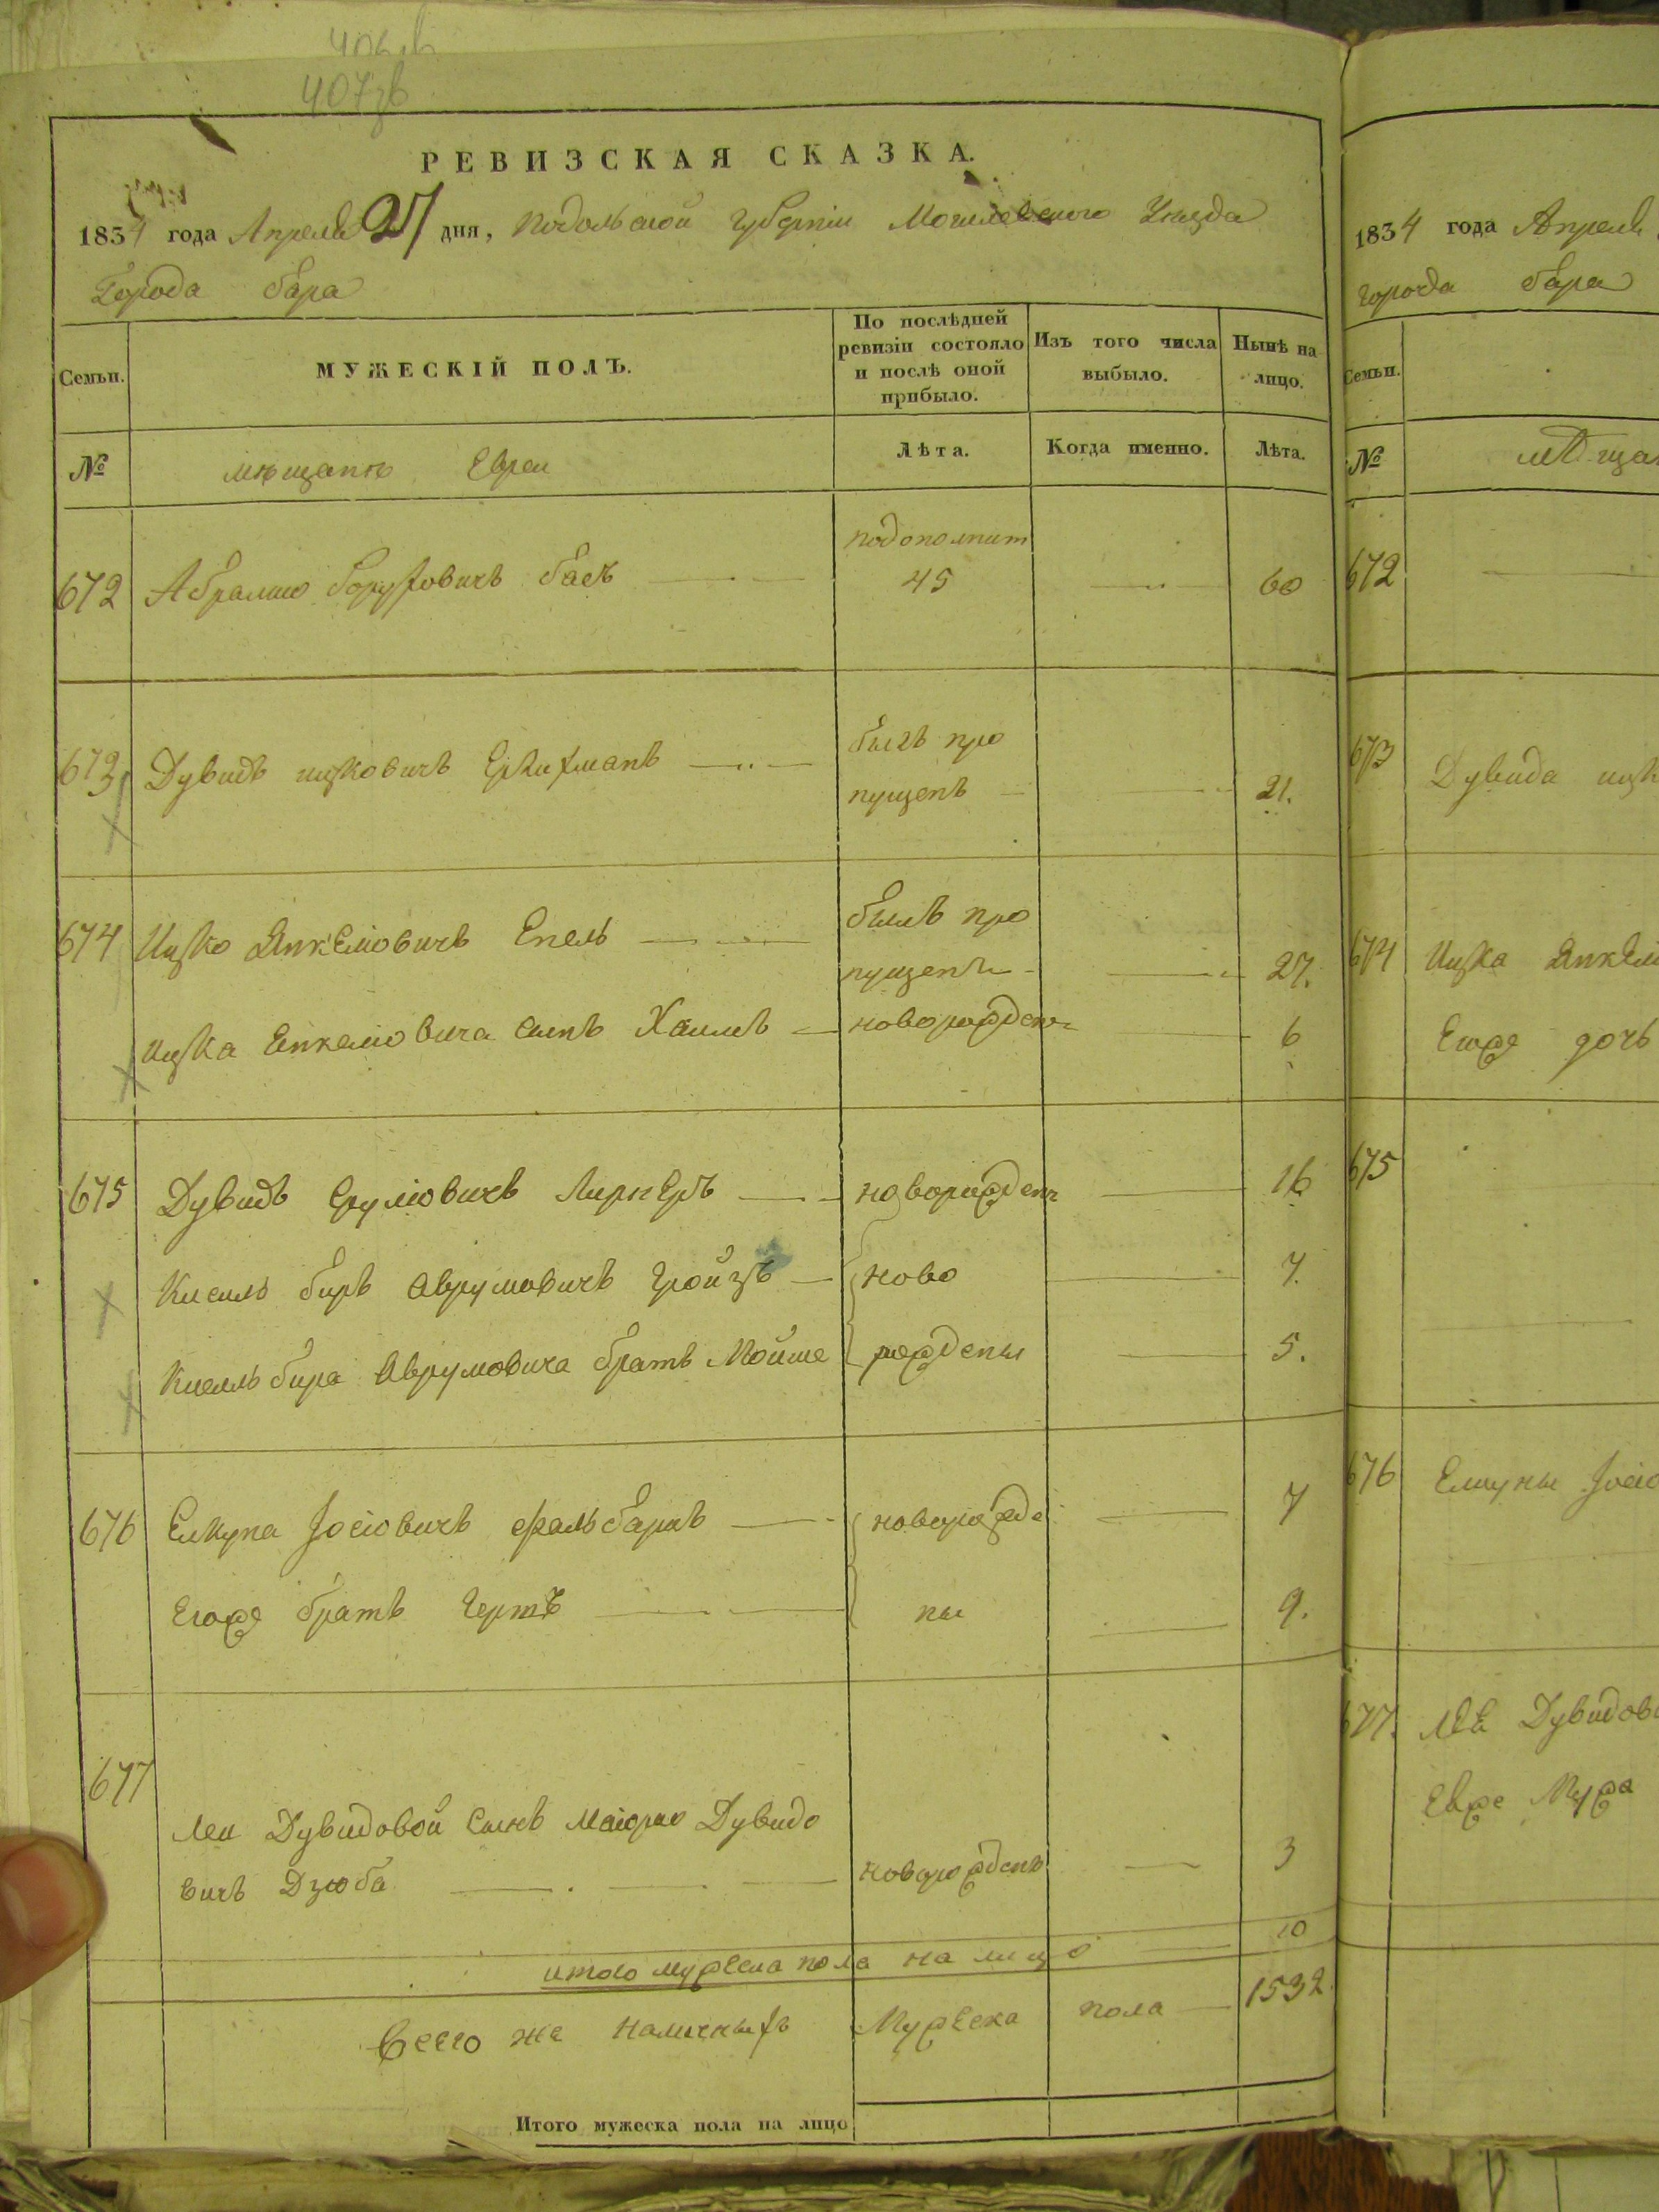 407
РЕВИЗСКАЯ СКАЗКА.
1834 года Апреля 27 дня, Подольской Губернии Могилевского Уезда
Города Бара
Семьи.
МУЖЕСКІЙ ПОЛЪ.
По послѣдней ревизіи состояло и послѣ оной прибыло.
Изъ того числа выбыло.
Нынѣ на лицо.
№
мещане Евреи
Лѣта.
Когда именно.
Лѣта.
672 Абрамко Борухович Басъ 45 60
673 Дувидъ ицкович былъ про
пущенъ 21.
674 Ицко Янкелiовичъ Епель былъ про
пущенъ 27.
ицка Енкелiовича сынъ Хаимъ новорожден 6
675 Дувидъ Сруліовичъ Лирнеръ новорожден 16
Кисиль биръ Аврумовичъ Гройзъ ново 7.
Кисиль бира Аврумовича братъ Мойше рождены 5.
676 Елкуна Іосіовичъ новорожде 7
Егоже братъ Герш ны 9.
677
Леи Дувидовой сынъ Маiорко Дувидо
вичъ Дзюба новорожденъ 3
итого мужеска пола на лицо 10
Всего же наличныхъ Мужеска пола 1532
Итого мужеска пола на лицо
1834 года Апреля
города бара
Семьи.
№ мѣща
672
673 Дувида ицк
674 Ицка Янкел
Егоже дочь
675
676 Елкуны Іосіо
677. Леи Дувидов